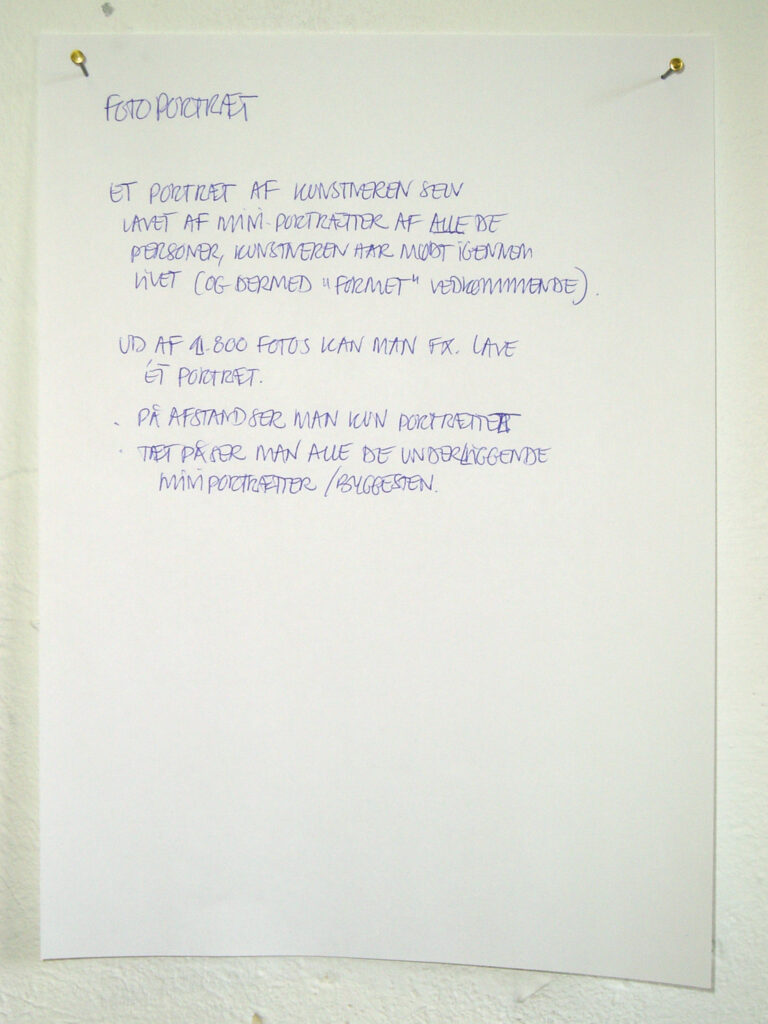 FOTOPORTRÆT
ET PORTRÆT AF KUNSTNEREN SELV
LAVET AF MINI-PORTRÆTTER AF ALLE DE
PERSONER, KUNSTNEREN HAR MØDT IGENNEM
LIVET (OG DERMED "FORMET" VEDKOMMENDE).
UD AF 11.800 FOTOS KAN MAN FX. LAVE
ÉT PORTRÆT.
· PÅ AFSTAND SER MAN KUN PORTRÆTTET
· TÆT PÅ SER MAN ALLE DE UNDERLIGGENDE
MINIPORTRÆTTER / BYGGESTEN.